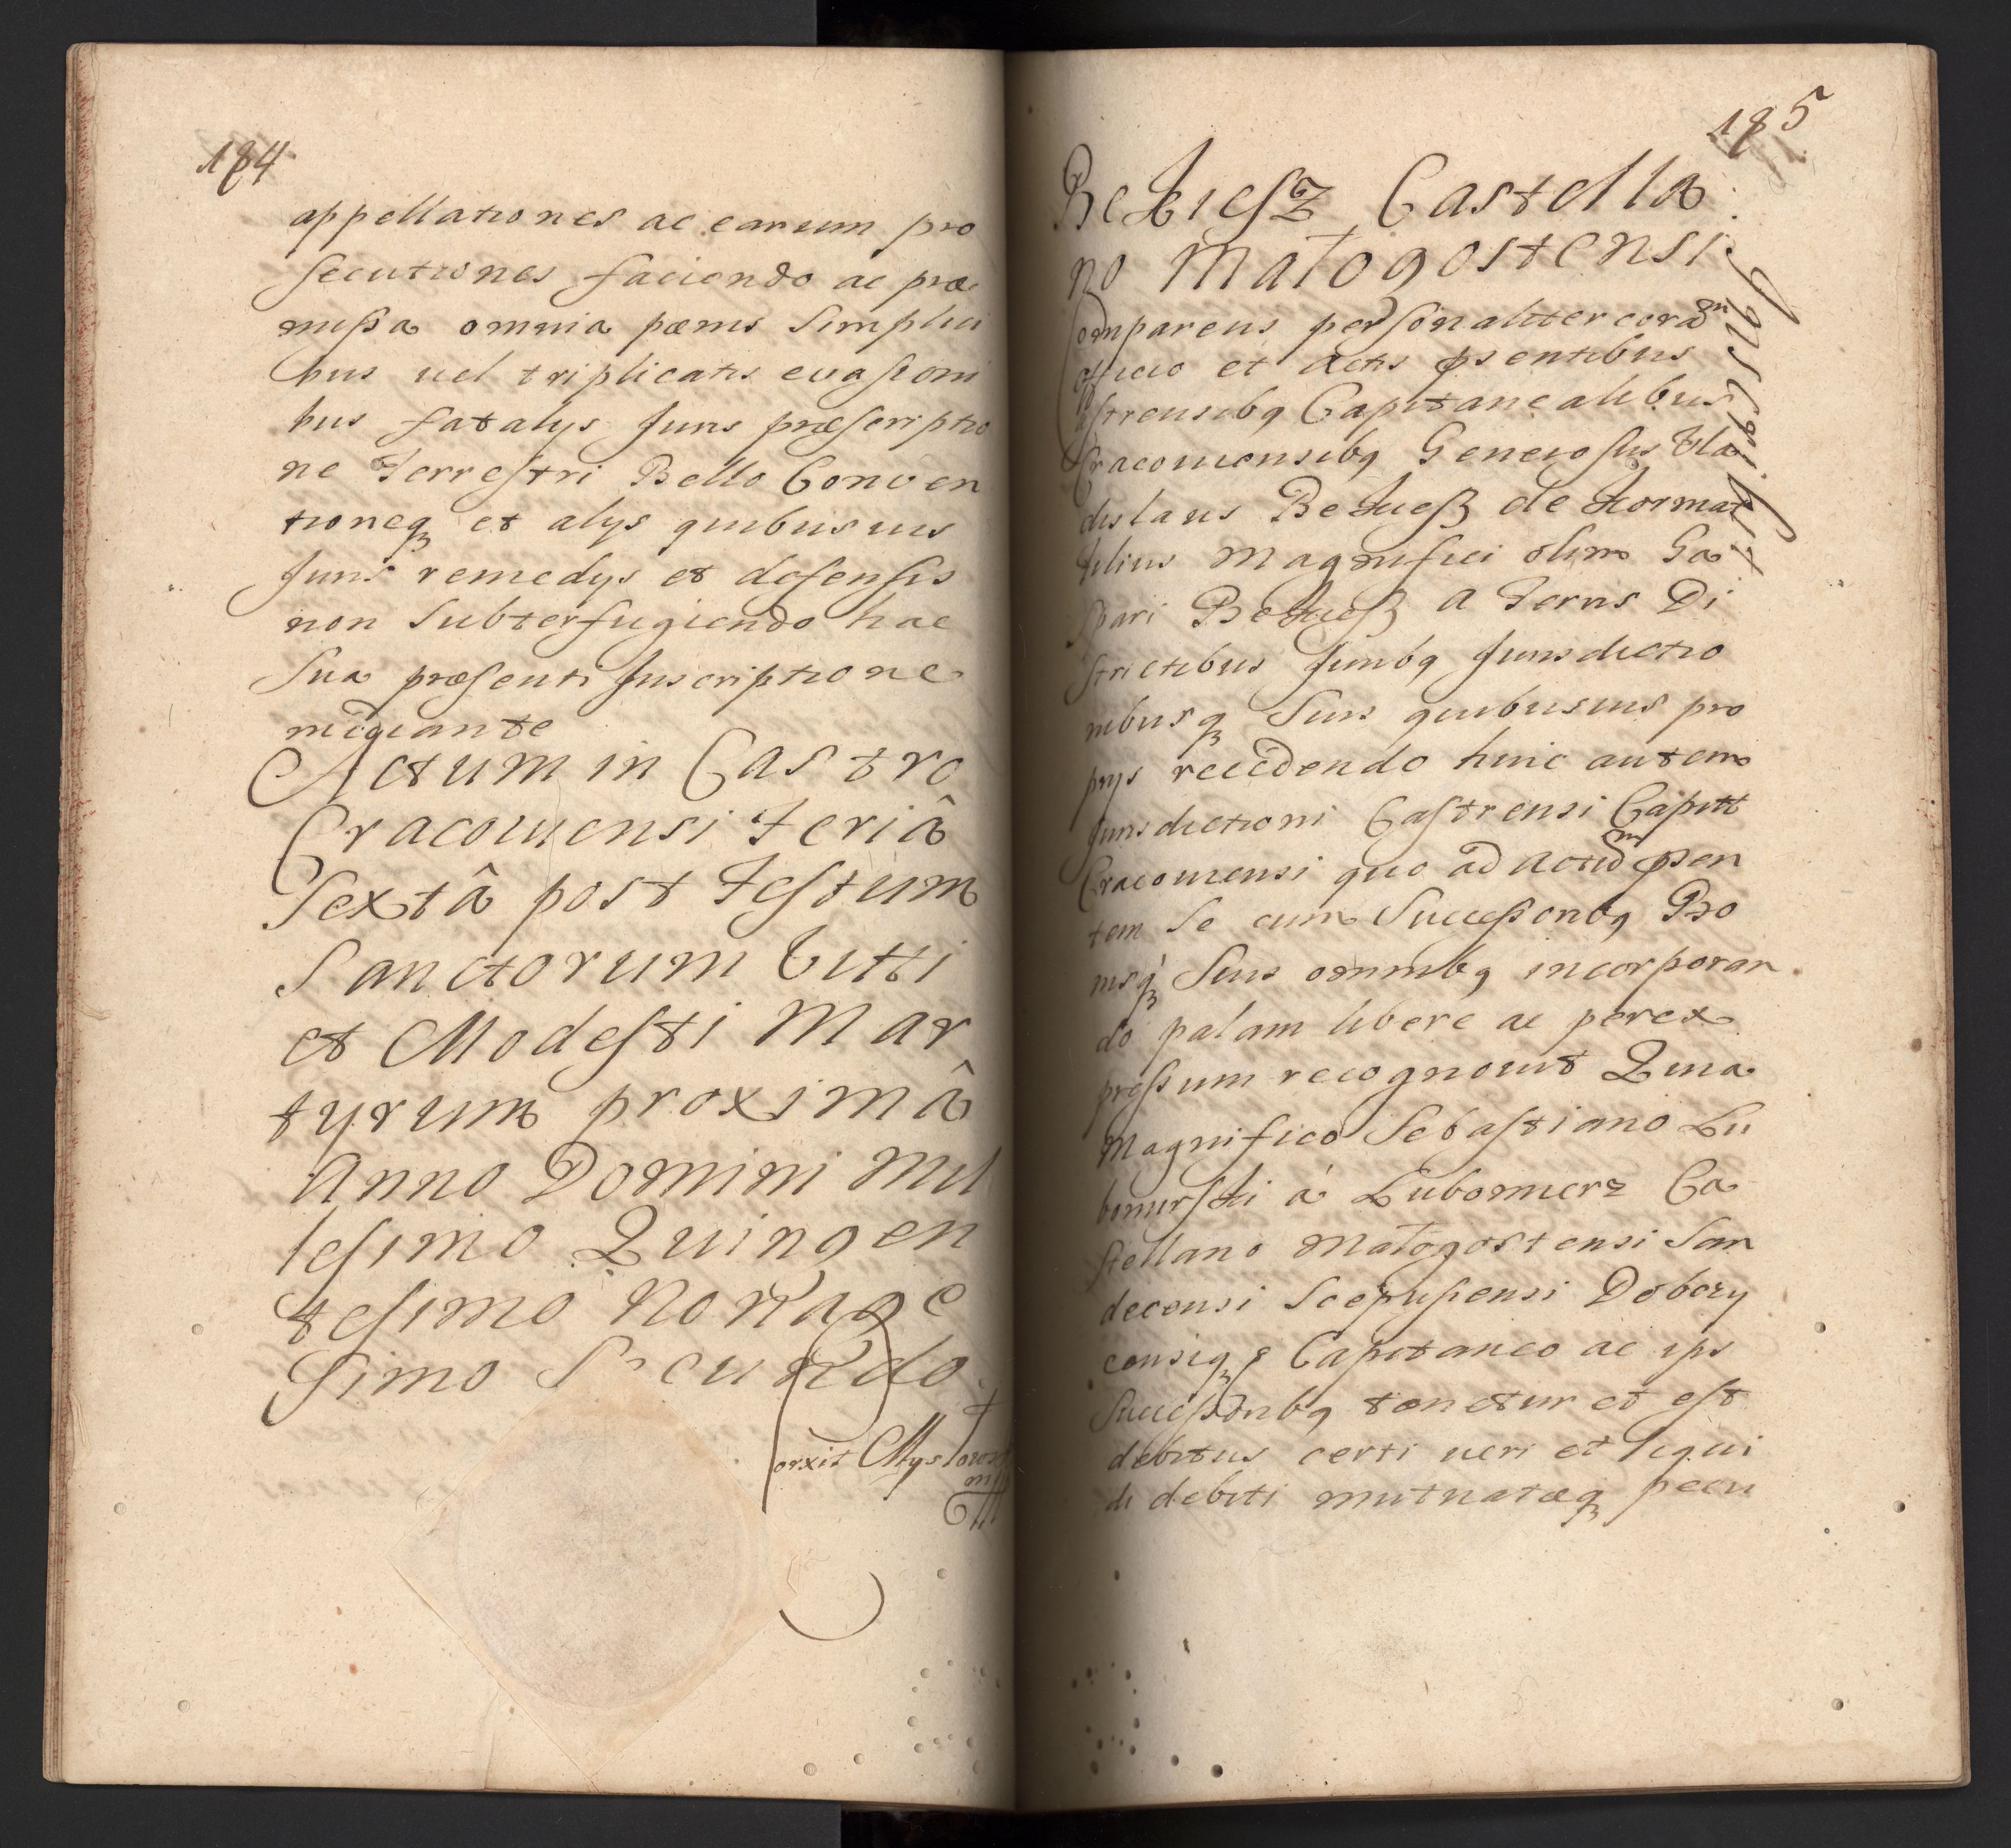 184
appellationes ac earum pro
secutiones faciendo ac præ
missa omnia pœnis Simplici
bus uel triplicatis euasioni
bus fatalys Juris præscriptio
ne Terrestri Bello Conuen
tioneq₃ et alys quibusuis
Juris remedys et defensis
non Subterfugiendo hac
Sua præsenti Inscriptione
mediante
Actum in Castro
Cracouiensi Feriâ
Sextâ post Festum
Sanctorum Vitti
et Modesti Mar
tyrum proximâ
Anno Domini Mil
lesimo Quingen
tesimo Nonage
Simo Secundo
185
Bekiesz Castella
no Małogostensi
Inscribit
Comparens personaliter coram
officio et Actis pſentibus
Castrensibq Capitanealibus
Cracouiensibq Generosus Vla
dislaus Bekieß de Kormat
filius Magnifici olim Ga
spari Bekieß a Terris Di
strictibus Juribq Jurisdictio
nibusq₃ Suis quibusuis pro
prys recedendo huic autem
Jurisdictioni Castrensi Capitt
Cracouiensi quo ad Actum pſen
tem Se cum Successoribq Bo
nisq₃ Suis omnibq incorporan
do palam libere ac perex
pressum recognouit Quia
Magnifico Sebastiano Lu
bomirski á Lubomierz Ca
stellano Małogostensi San
decensi Scepusiensi Dobczy
censiq₃ Capitaneo ac ips
Successoribq tenetur et est
debitus certi ueri et liqui
di debiti mutuatæq₃ pecu